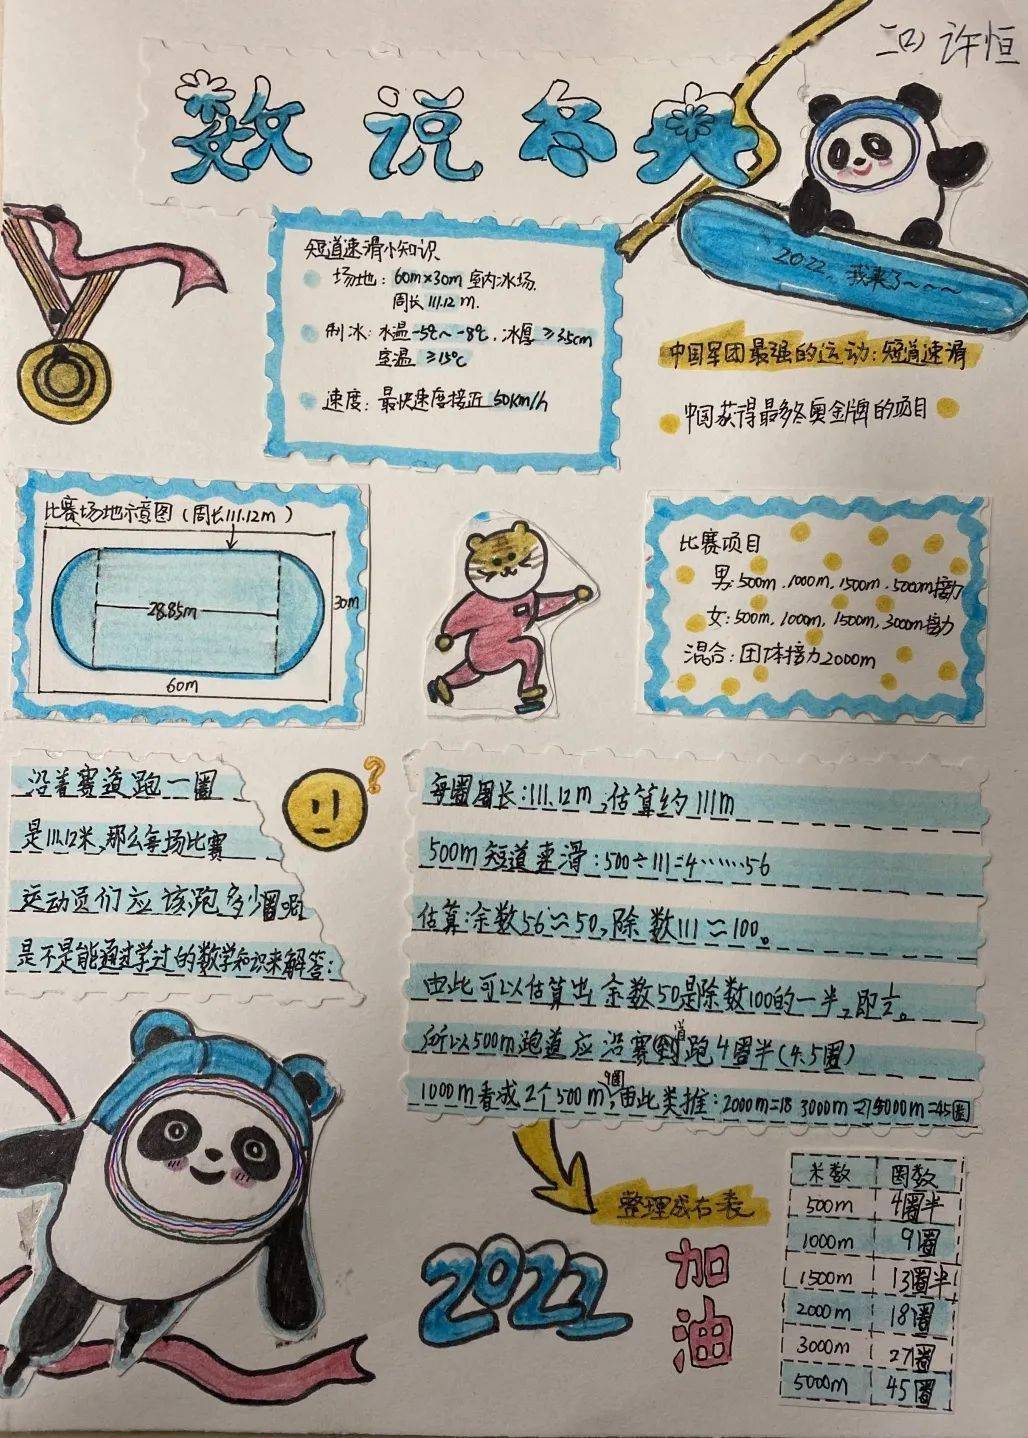 二(2) 许恒
数说冬奥
2022,我来了~~~~
短道速滑小知识
场地:60m×30m 室内冰场.
周长111.12m.
制冰:水温-5℃~-8℃,冰厚≥3.5cm
室温 ≥15℃
速度:最快速度接近50km/h
中国军团最强的运动:短道速滑
中国获得最多冬奥金牌的项目
比赛场地示意图(周长111.12m)
28.85m
30m
60m
比赛项目
男:500m,1000m,1500m,5000m接力
女:500m,1000m,1500m,3000m接力
混合:团体接力2000m
沿着赛道跑一圈
是111.12米,那么每场比赛
运动员们应该跑多少圈呢
是不是能通过学过的数学知识来解答:
?
每圈周长:111.12m,估算约111m
500m短道速滑:500÷111=4……56
估算:余数56≈50,除数111≈100。
由此可以估算出余数50是除数100的一半,即½。
所以500m跑道应沿赛道跑4圈半(4.5圈)
1000m看成2个500m,9圈,由此类推:2000m=18 3000m=27 5000m=45圈
整理成右表
米数 圈数
500m 4圈半
1000m 9圈
1500m 13圈半
2000m 18圈
3000m 27圈
5000m 45圈
2022
加油